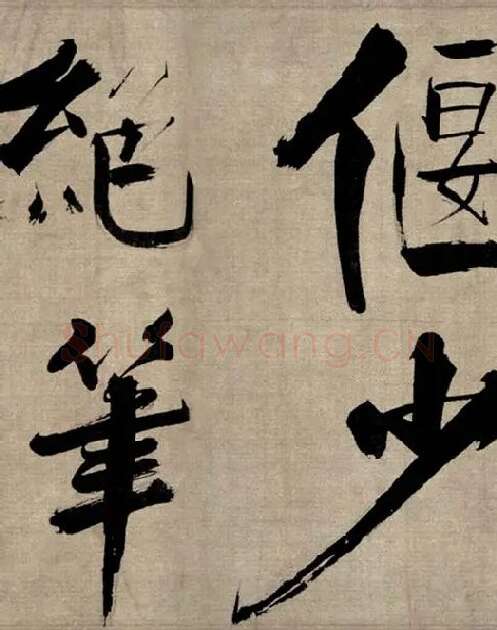 偃少
絕筆
Shufawang.CN